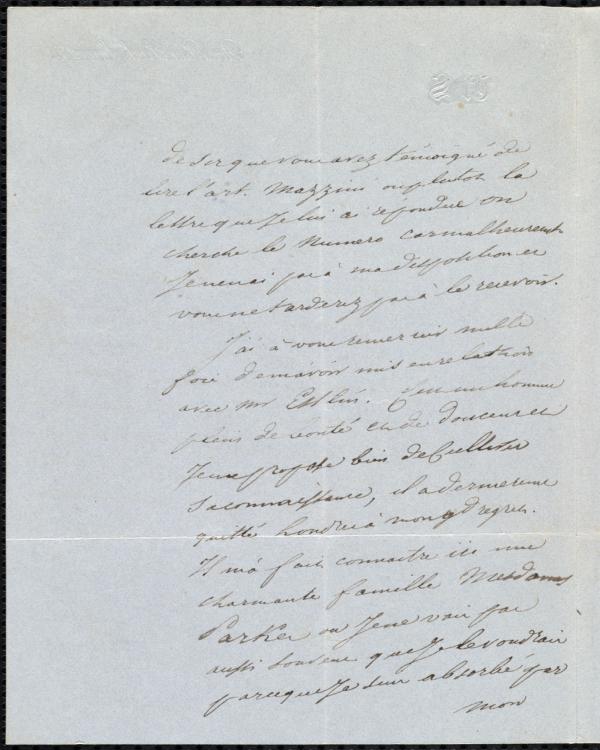 desir que vous avez témoigné de
lire l'art. Mazzini ou plutot la
lettre que Je lui ai répondue on
cherche le Numero car malheureusemt
Je n'en ai pas à ma disposition et
vous ne tarderez pas à le recevoir.
J'ai à vous remercier mille
fois de m'avoir mis en relation
avec Mr Estlin. C'est un homme
plein de bonté et de douceur et
Je me propose bien de Cultiver
sa connaissance, il a dernierement
quitté Londres à mon gd regret.
Il m'a fait connaitre ici une
charmante famille Mesdames
Parker ou Je ne vais pas
aussi souvent que Je le voudrais
parceque Je suis absorbé par
mon